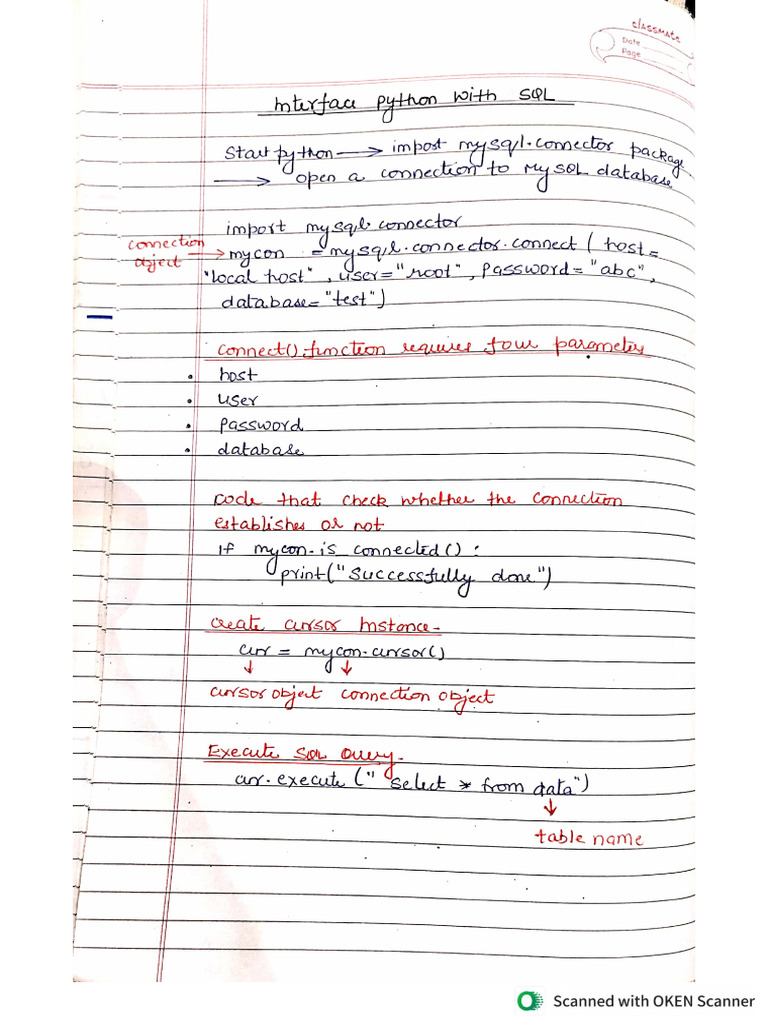 classmate
Date
Page
Interface python with SQL
Start python → import mysql.connector package
→ open a connection to MySQL database
import mysql.connector
connection object → mycon = mysql.connector.connect ( host=
"local host" , user="root" , Password= "abc" ,
database="test")
connect() function requires four parameters
• host
• user
• Password
• database
code that check whether the connection
establishes or not
If mycon.is connected() :
print("Successfully done")
create cursor Instance-
cur = mycon.cursor()
↓ ↓
cursor object connection object
Execute SQL Query-
cur.execute (" select * from data")
↓
table name
Scanned with OKEN Scanner